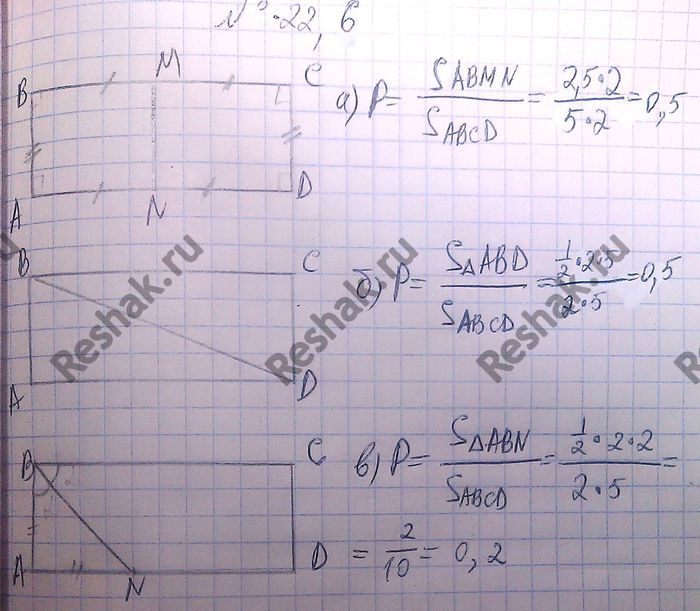 № 22,6
B M C
A N D
а) P = S ABMN / S ABCD = 2,5·2 / 5·2 = 0,5
B C
A D
б) P = S△ABD / S ABCD = 1/2·2·5 / 2·5 = 0,5
B C
A N D
в) P = S△ABN / S ABCD = 1/2·2·2 / 2·5 =
= 2/10 = 0,2
Reshak.ru
Reshak.ru
Reshak.ru